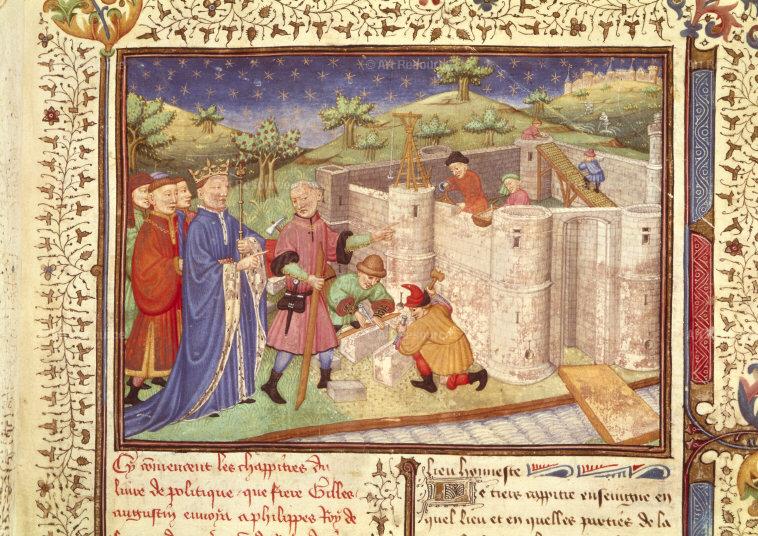 Cy cōmencent les chappitres du
liure de politique, que frere Gilles
augustin enuoya a phelippes Roy de
lieu honneste
Le tiers cappitre enseingne en
quel lieu et en quelles parties de la